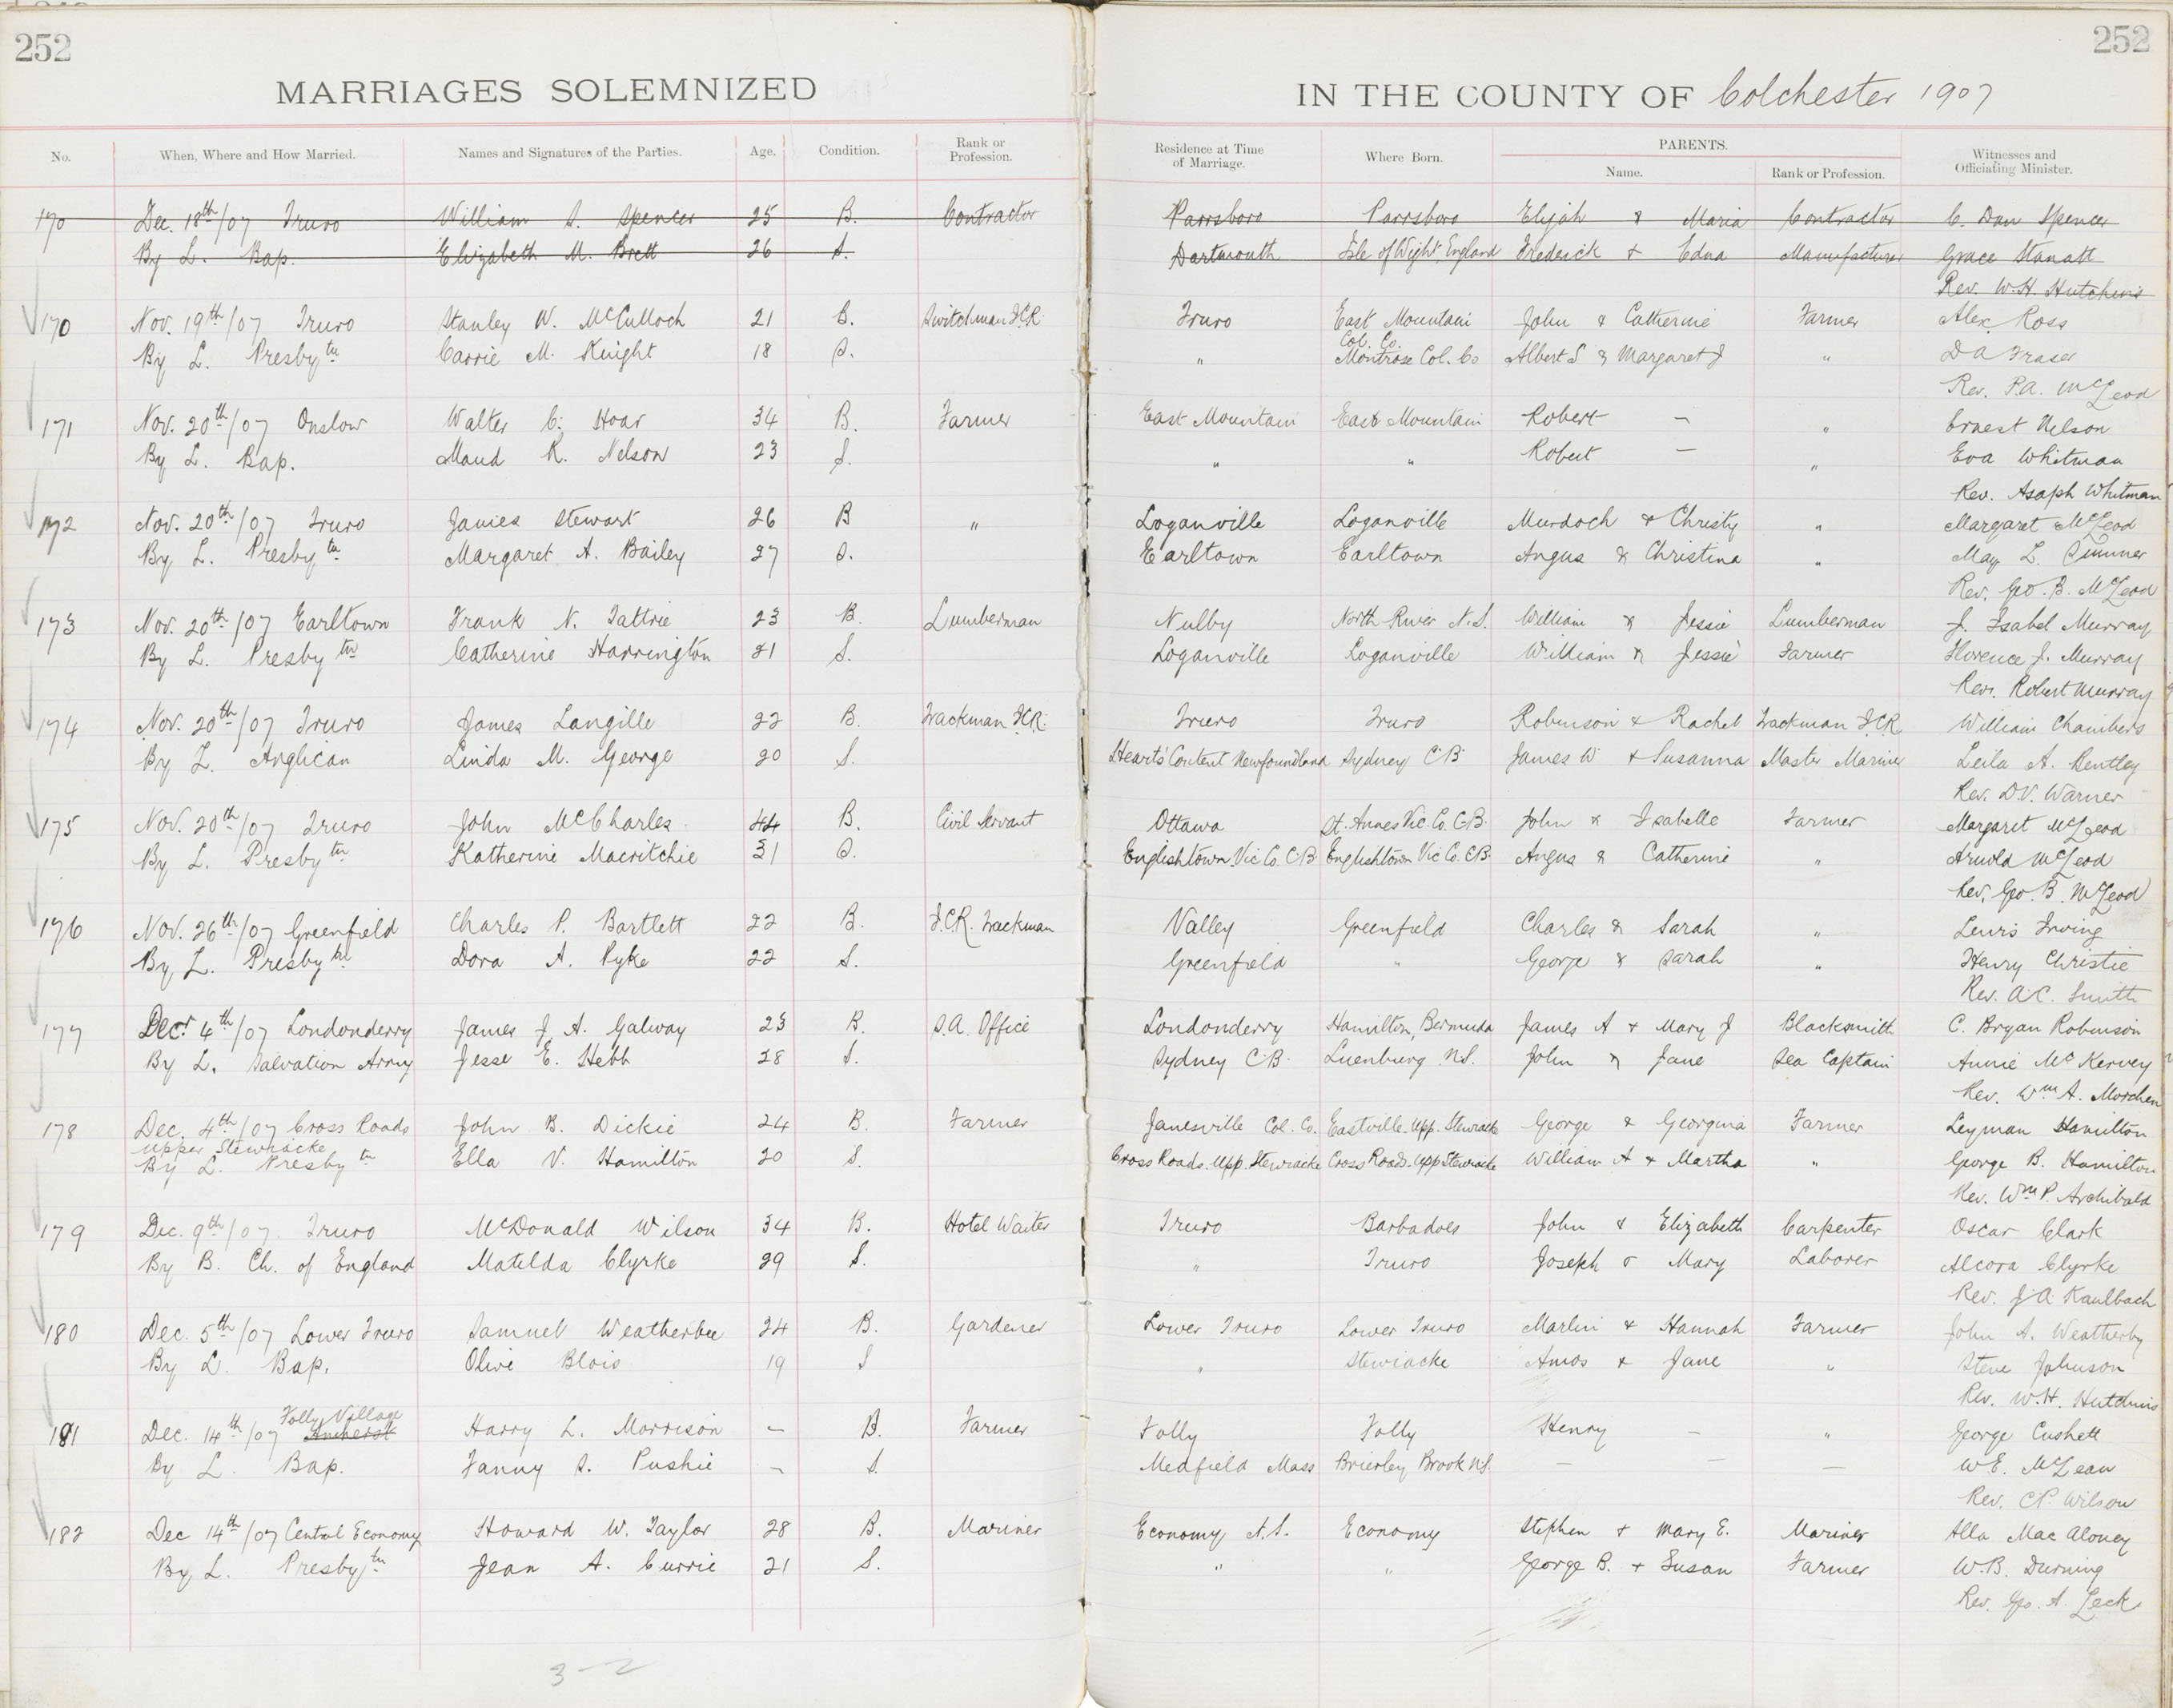 252
252
MARRIAGES SOLEMNIZED
IN THE COUNTY OF Colchester 1907
No. When, Where and How Married. Names and Signatures of the Parties. Age. Condition. Rank or Profession. Residence at Time of Marriage. Where Born. PARENTS. Name. Rank or Profession. Witnesses and Officiating Minister.
170 Dec. 18th/07 Truro William S. Spencer 25 B. Contractor Parrsboro Parrsboro Elijah & Maria Contractor C. Dan Spencer
By L. Bap. Elizabeth M. Brett 26 S. Dartmouth Isle of Wight, England Frederick + Edna Manufacturer Grace Stanatt
Rev. W.H. Hutchins
170 Nov. 19th/07 Truro Stanley W. McCulloch 21 B. Switchman I.C.R. Truro East Mountain Col. Co. John & Catherine Farmer Alex Ross
By L. Presbytn Carrie M. Knight 18 S. " Montrose Col. Co Albert S & Margaret J " D A Fraser
Rev. P.A. McLeod
171 Nov. 20th/07 Onslow Walter C. Hoar 34 B. Farmer East Mountain East Mountain Robert — " Ernest Nelson
By L. Bap. Maud K. Nelson 23 S. " " Robert — " Eva Whitman
Rev. Asaph Whitman
172 Nov. 20th/07 Truro James Stewart 26 B " Loganville Loganville Murdoch & Christy " Margaret McLeod
By L. Presbytn Margaret A. Bailey 27 S. Earltown Earltown Angus & Christina " May L.
Rev. Geo. B. McLeod
173 Nov. 20th/07 Earltown Frank N. Tattrie 23 B. Lumberman Nulby North River N.S. William & Jessie Lumberman J. Isabel Murray
By L. Presbytn Catherine Harrington 21 S. Loganville Loganville William & Jessie Farmer Florence J. Murray
Rev. Robert Murray
174 Nov. 20th/07 Truro James Langille 22 B. Trackman I.C.R. Truro Truro Robinson & Rachel Trackman I.C.R. William Chambers
By L. Anglican Linda M. George 20 S. Heart's Content Newfoundland Sydney C B James W + Susanna Master Mariner Leila A. Bentley
Rev. D.V. Warner
175 Nov. 20th/07 Truro John McCharles 44 B. Civil Servant Ottawa St. Annes Vic. Co. C.B. John & Isabelle Farmer Margaret McLeod
By L. Presbytn Katherine Macritchie 31 S. Englishtown Vic Co. C.B Englishtown Vic Co. C.B. Angus & Catherine " Arnold McLeod
Rev. Geo. B. McLeod
176 Nov. 26th/07 Greenfield Charles P. Bartlett 22 B. I.C.R. Trackman Valley Greenfield Charles & Sarah " Lewis Irving
By L. Presbytn Dora A. Pyke 22 S. Greenfield " George & Sarah " Henry Christie
Rev. A.C. Smith
177 Decr 4th/07 Londonderry James J. A. Galway 23 B. S.A. Office Londonderry Hamilton, Bermuda James A + Mary J Blacksmith C. Bryan Robinson
By L. Salvation Army Jesse E. Hebb 28 S. Sydney C.B. Luenburg N.S. John & Jane Sea Captain Annie McKervey
Rev. Wm A. Morchen
178 Dec. 4th/07 Cross Roads John B. Dickie 24 B. Farmer Janesville Col. Co. Eastville Upp. Stewiacke George & Georgina Farmer Leyman Hamilton
Upper Stewiacke
By L. Presbytn Ella V. Hamilton 20 S. Cross Roads Upp. Stewiacke Cross Roads Upp Stewiacke William A & Martha " George B. Hamilton
Rev. Wm P. Archibald
179 Dec. 9th/07 Truro McDonald Wilson 34 B. Hotel Waiter Truro Barbadoes John & Elizabeth Carpenter Oscar Clark
By B. Ch. of England Matilda Clyrke 29 S. " Truro Joseph & Mary Laborer Alcora Clyrke
Rev. J A Kaulbach
180 Dec. 5th/07 Lower Truro Samuel Weatherbee 24 B. Gardener Lower Truro Lower Truro Marlin & Hannah Farmer John A. Weatherby
By L. Bap. Olive Blois 19 S " Stewiacke Amos & Jane " Steve Johnson
Rev. W.H. Hutchins
Folly Village
181 Dec. 14th/07 Amherst Harry L. Morrison — B. Farmer Folly Folly Henry — " George Cushett
By L. Bap. Fanny S. Pushie — S. Medfield Mass Brierley Brook N.S. — — — W.E. McLean
Rev. C.P. Wilson
182 Dec 14th/07 Central Economy Howard W. Taylor 28 B. Mariner Economy N.S. Economy Stephen + Mary E. Mariner Alla MacAloney
By L. Presbytn Jean A. Currie 21 S. " " George B. + Susan Farmer W.B. Durning
Rev. Geo. A. Leck
3-2